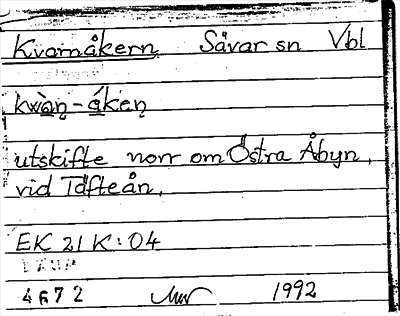 Kvarnåkern Sävar sn Vbl
kwàṇ-åkeṇ
utskifte norr om Östra Åbyn,
vid Täfteån.
EK 21 K:04
4672 1992